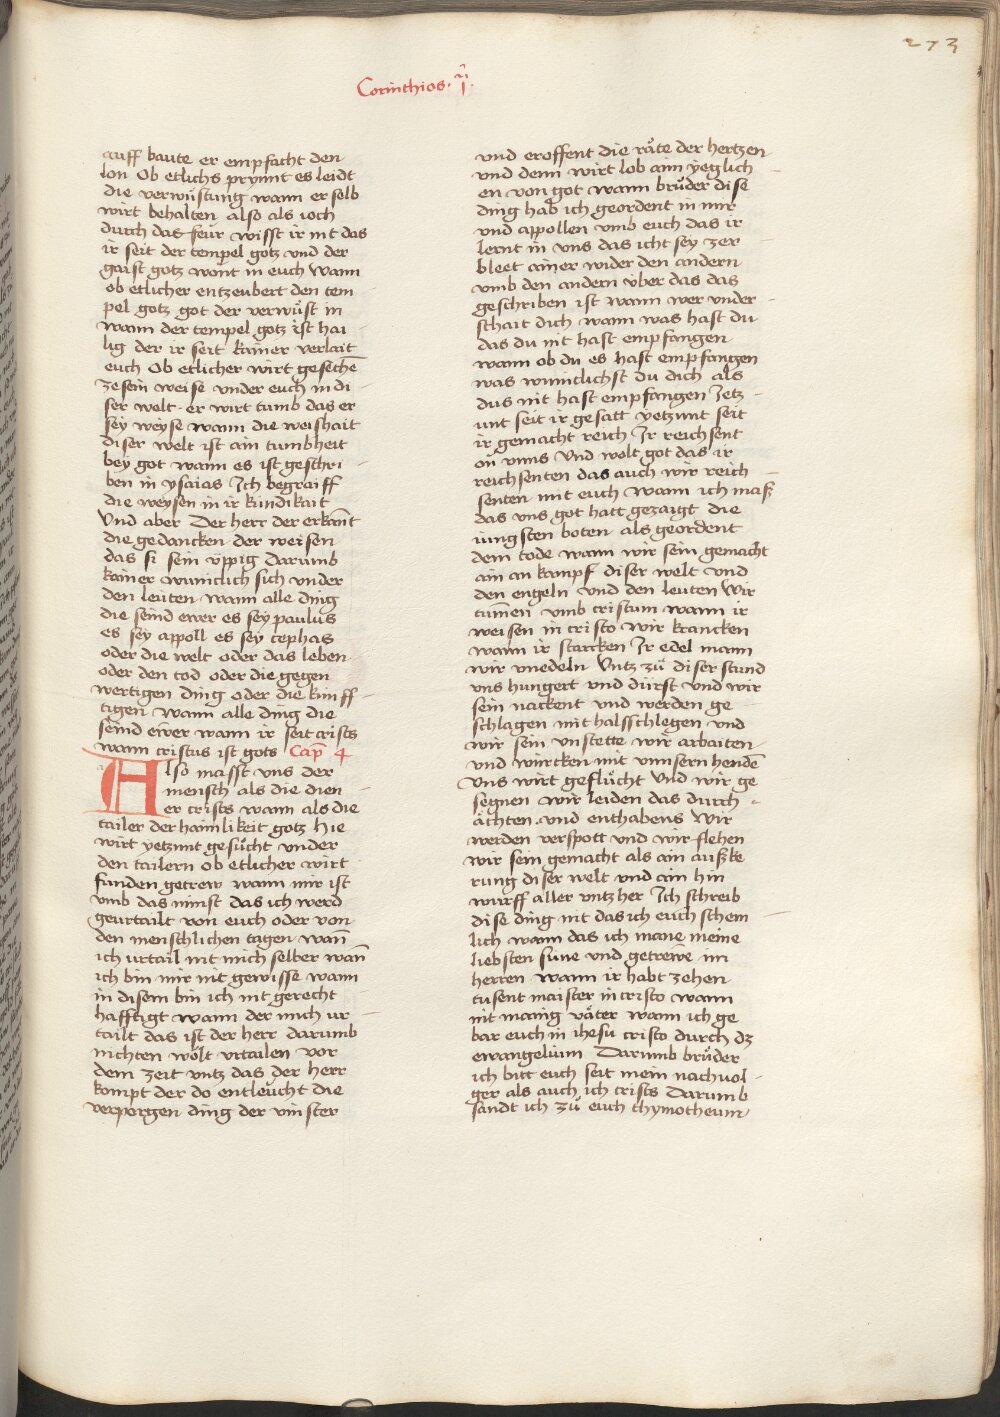 273
Corinthios · j ·
auff baute er empfacht den
lon Ob etlichs prynnt es leidt
die verwústung wann er selb
wirt behalten also als ioch
durch das feúr wisst ir nit das
ir seit der tempel gotz vnd der
gaist gotz wont in euch wann
ob etlicher entzeubert den tem
pel gotz got der verwúst in
wann der tempel gotz ist hai
lig der ir seit kainer verlait
euch Ob etlicher wirt gesechē
ze sein weise vnder euch in di
ser welt · er wirt tumb das er
sey weyse wann die weishait
diser welt ist ain tumbheit
bey got wann es ist geschri
ben in ysaias Ich begraiff
die weysen in ir kúndikait
Vnd aber Der herr der erkānt
die gedancken der weisen
das si sein úppig Darumb
kainer wunīclich sich vnder
den leúten wann alle ding
die seind ewer es sey paulus
es sey appoll es sey cephas
oder die welt oder das leben
oder den tod oder die gegen
wertigen ding oder die kúnff
tigen wann alle ding die
seind ewer wann ir seit crists
wann cristus ist gots Capm̄ 4
Also masst vns der
mensch als die dien
er crists wann als die
tailer der haimlikeit gotz Hie
wirt yetzunt gesúcht vnder
den tailern ob etlicher wirt
funden getrew wann mir ist
vmb das minst das ich werd
geurtailt von euch oder von
den menschlichen tagen wañ
ich vrtail nit mich selber wañ
ich bin mir nit gewisse wann
in disem bin ich nit gerecht
hafftigt wann der mich ur
tailt das ist der herr darumb
nichten wólt vrtailen vor
dem zeit vntz das der herr
kompt der do entleúcht die
verporgen ding der vinster
vnd eroffent die ráte der hertzen
vnd denn wirt lob aim yeglich
en von got wann brúder dise
ding hab ich geordent in mir
vnd appollen vmb euch das ir
lernt in vns das icht sey zer
bleet ainer wider den andern
vmb den andern úber das das
geschriben ist wann wer vnder
schait dich wann was hast du
das du nit hast empfangen
wann ob du es hast empfangen
was wunīclichst du dich als
dus nit hast empfangen Ietz
unt seit ir gesatt yetzunt seit
ir gemacht reich Ir reichsent
on vnns Vnd wolt got das ir
reichsenten das auch wir reich
senten mit euch wann ich maß
das vns got hatt gezaigt die
iungsten boten als geordent
dem tode wann wir sein gemacht
ain an kampf diser welt vnd
den engeln vnd den leuten Wir
tum̄en vmb cristum wann ir
weisen in cristo wir krancken
wann ir starcken Ir edel mann
wir vnedeln Vntz zú diser stund
vns hungert vnd dúrst vnd wir
sein nackent vnd werden ge
schlagen mit halsschlegen vnd
wir sein vnstette wir arbaiten
vnd wúrcken mit vnnsern hendē
Vns wirt geflúcht Vnd wir ge
segnen wir leiden das durch
áchten · vnd enthabens Wir
werden verspott vnd wir flehen
wir sein gemacht als ain außke
rung diser welt vnd ain hin
wurff aller vntz her Ich schreib
dise ding nit das ich euch schem
lich wann das ich mane meine
liebsten súne vnd getrewe im
herren wann ir habt zehen
tusent maister in cristo wann
nit maing váter wann ich ge
bar euch in ihesu cristo durch dz
ewangelium Darumb brúder
ich bitt euch seit mein nachuol
ger als auch ich crists Darumb
sandt ich zú euch thymotheum